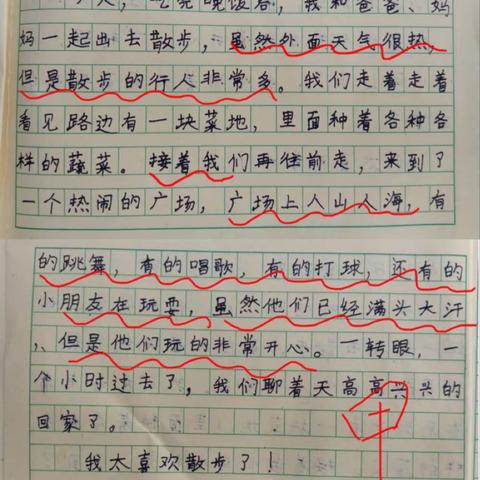 人，吃完晚饭后，我和爸爸、妈
妈一起出去散步，虽然外面天气很热，
但是散步的行人非常多。我们走着走着
看见路边有一块菜地，里面种着各种各
样的蔬菜。接着我们再往前走，来到了
一个热闹的广场，广场上人山人海，有
的跳舞，有的唱歌，有的打球，还有的
小朋友在玩耍，虽然他们已经满头大汗
，但是他们玩的非常开心。一转眼，一
个小时过去了，我们聊着天高高兴兴的
回家了。
我太喜欢散步了！